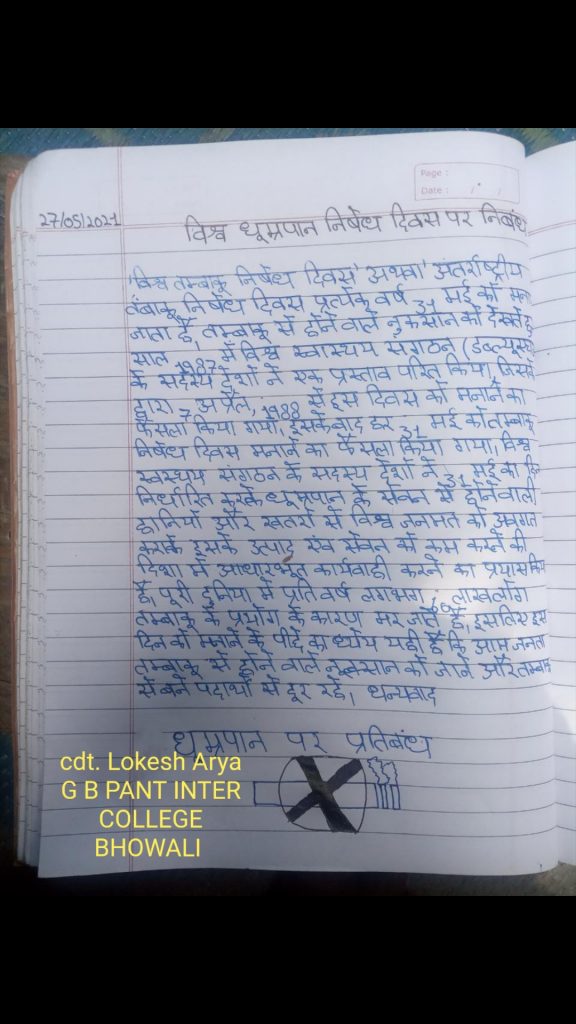 Page :
Date : / /
27/05/2021
विश्व धूम्रपान निषेध दिवस पर निबंध
'विश्व तम्बाकू निषेध दिवस' अथवा 'अंतर्राष्ट्रीय
तंबाकू निषेध दिवस प्रत्येक वर्ष 31 मई को मना
जाता है, तम्बाकू से होने वाले नुकसान को देखते हु
साल 1987 में विश्व स्वास्थ्य संगठन (डब्ल्यूएच
के सदस्य देशों ने एक प्रस्ताव पारित किया, जिसके
द्वारा 7 अप्रैल, 1988 से इस दिवस को मनाने का
फैसला किया गया, इसके बाद हर 31 मई को तम्बाकू
निषेध दिवस मनाने का फैसला किया गया, विश्व
स्वस्थ्य संगठन के सदस्य देशों ने 31 मई का दिन
निर्धारित करके धूम्रपान के सेवन से होने वाली
हानियों और खतरों से विश्व जनमत को अवगत
कराके इसके उत्पाद एवं सेवन को कम करने की
दिशा में आधारभूत कार्यवाही करने का प्रयास किया
है, पूरी दुनिया में प्रति वर्ष लगभग लाख लोग
तम्बाकू के प्रयोग के कारण मर जाते हैं, इसलिए इस
दिन को मनाने के पीछे का ध्येय यही है कि आम जनता
तम्बाकू से होने वाले नुकसान को जाने और तम्बाकू
से बने पदार्थों से दूर रहे। धन्यवाद
धूम्रपान पर प्रतिबंध
cdt. Lokesh Arya
G B PANT INTER
COLLEGE
BHOWALI